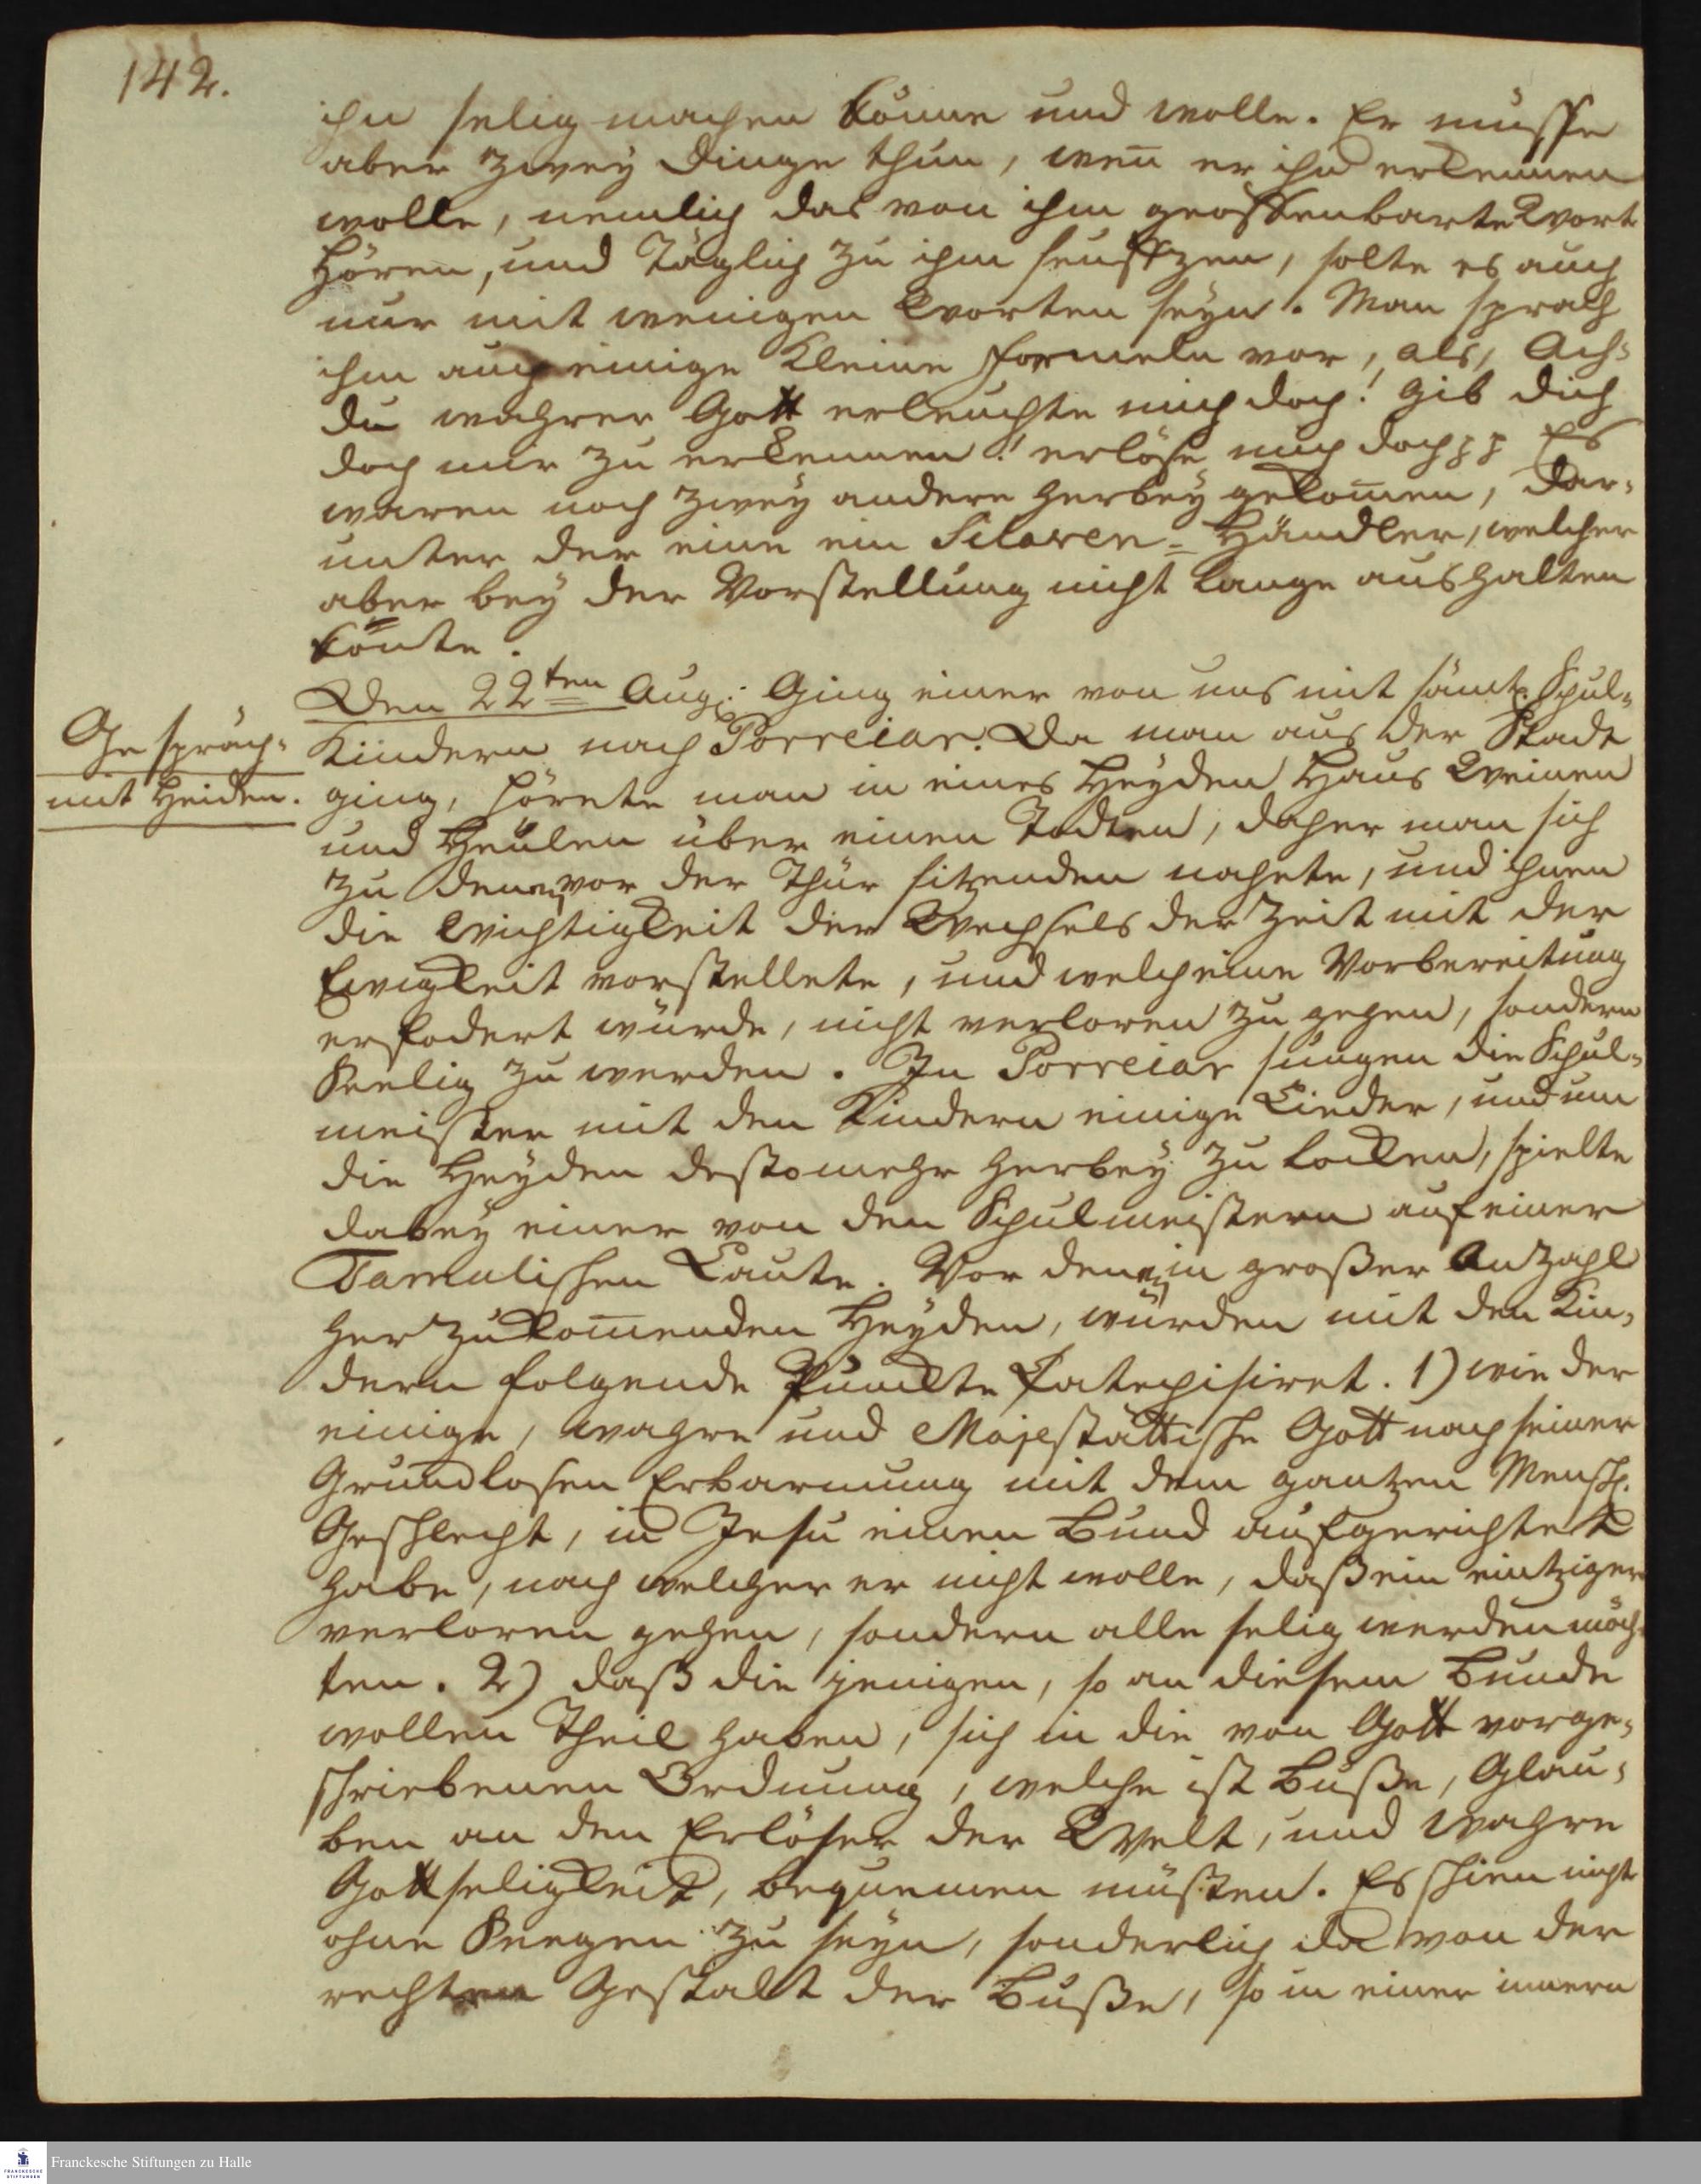 142.
ihn selig machen könne und wolle. Er müsse
aber zwey Dinge thun, weñ er ihn erkennen
wolle, nemlich das von ihm geoffenbarte Wort
Hören, und Täglich zu ihm seufftzen, solte es auch
nur mit wenigen Worten seyn. Man sprach
ihm auch einige Kleine Formeln vor, als, Ach:
du wahrer Gott erleuchte mich doch! gib dich
doch mir zu erkennen! erlöse mich doch pp Es
waren noch zwey andere herbey gekom̄en, dar-
unter der eine ein Sclaven-Händler, welcher
aber bey der Vorstellung nicht lange aushalten
kōnte.
Den 22ten Aug: Ging einer von uns mit sämtl. Schul-
Gespräch-
mit Heiden.
Kindern nach Porreiar. Da man aus der Stadt
ging, hörete man in eines Heyden Haus Weinen
und Heulen über einen Todten, daher man sich
zu denen vor der Thür sitzenden nahete, und ihnen
die Wichtigkeit der Wechsels der Zeit mit der
Ewigkeit vorstellete, und welch eine Vorbereitung
erfodert würde, nicht verloren zu gehen, sondern
Seelig zu werden. In Porreiar sungen die Schul-
meister mit den Kindern einige Lieder, und um
die Heyden destomehr herbey zu locken, spielte
dabey einer von den Schulmeistern auf einer
Tamulischen Laute. Vor denen in großer Anzahl
herzukom̄enden Heyden, würden mit den Kin-
dern folgende Puncte Catechisiret. 1) wie der
einige, wahre und Majestättische Gott nach seiner
Grundlosen Erbarmung mit dem gantzen Mensch.
Geschlecht, in Jesu einen Bund aufgerichtet
habe, nach welcher er nicht wolle, daß ein eintziger
verloren gehen, sondern alle selig werden möch-
ten. 2) daß die jenigen, so an diesem Bunde
wollen Theil haben, sich in die von Gott vorge-
schriebenen Ordnung, welche ist Buße, Glau-
ben an den Erlöser der Welt, und wahre
Gottseligkeit, bequemen müsten. Es schien nicht
ohne Seegen zu seyn, sonderlich da von der
rechten Gestalt der Buße, so in einer innern
Franckesche Stiftungen zu Halle